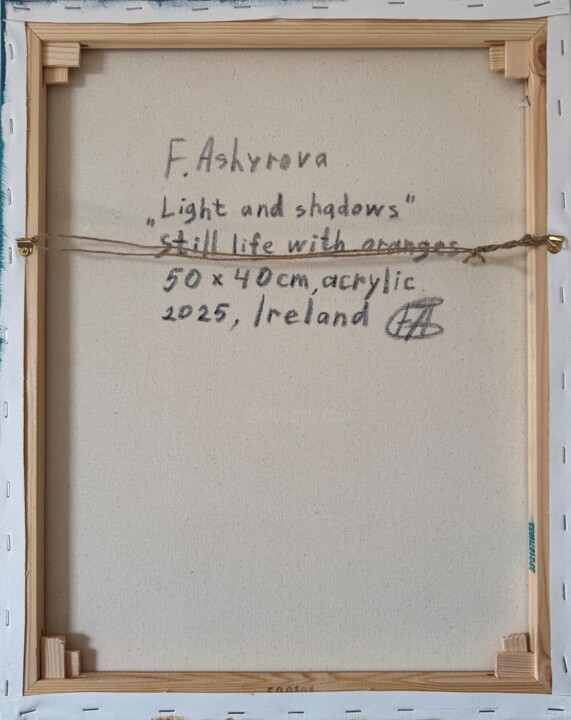 F. Ashyrova
„Light and shadows"
Still life with oranges
50 x 40 cm, acrylic
2025, Ireland FA